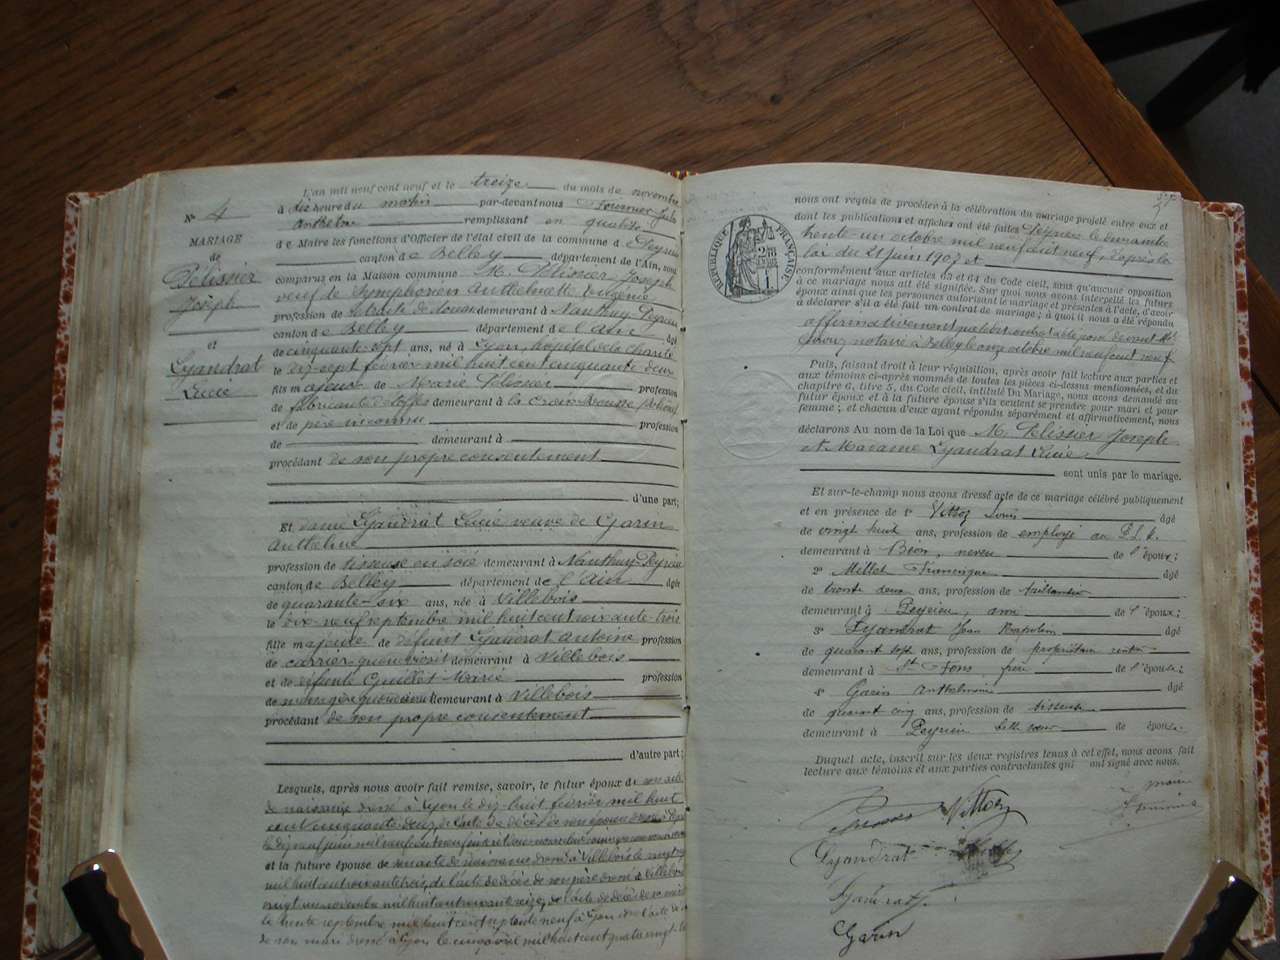 L'an mil neuf cent neuf et le treize du mois de novembre
à dix heure du matin par-devant nous Fournier Jules
Anthelme remplissant en qualité
N° 4
MARIAGE
de
Pélissier
Joseph
et
Gyandrat
Lucie
de Maire les fonctions d'Officier de l'état civil de la commune de Peyrieu
canton de Belley département de l'Ain, sont
comparus en la Maison commune M. Pélissier Joseph
veuf de Symphorien Anthelmette Eugénie
profession de retraité de douane demeurant à Nanthuy Peyrieu
canton de Belley département de l'Ain âgé
de cinquante-sept ans, né à Lyon, hôpital de la Charité
le dix-sept février mil huit cent cinquante deux
fils majeur de Marie Pélissier profession
de fabricante d'étoffes demeurant à la Croix Rousse
et de père inconnu profession
de demeurant à
procédant de son propre consentement
d'une part;
Et dame Gyandrat Lucie veuve de Garin
Anthelme
profession de tisseuse en soie demeurant à Nanthuy-Peyrieu
canton de Belley département de l'Ain âgée
de quarante-six ans, née à Villebois
le dix-neuf septembre mil huit cent soixante-trois
fille majeure de défunt Gyandrat Antoine profession
de carrier quand vivait demeurant à Villebois
et de défunte Marie profession
de ménagère demeurant à Villebois
procédant de son propre consentement
d'autre part;
Lesquels, après nous avoir fait remise, savoir, le futur époux de son acte
de naissance dressé à Lyon le dix-huit février mil huit
cent cinquante-deux, de l'acte de décès de son épouse dressé à
le dix neuf juin mil neuf cent neuf
et la future épouse de son acte de naissance dressé à Villebois le vingt
mil huit cent soixante trois, de l'acte de décès de son père dressé à Villebois
vingt un novembre mil huit cent quatre vingt seize, de l'acte de décès de sa mère
le trente septembre mil huit cent septante neuf à Lyon de l'acte de
de son mari dressé à Lyon le cinq avril mil huit cent quatre vingt
nous ont requis de procéder à la célébration du mariage projeté entre eux et
dont les publications et affiches ont été faites à Peyrieu le dimanche
trente-un octobre mil neuf cent neuf, d'après la
loi du 21 juin 1907 et
RÉPUBLIQUE FRANÇAISE
conformément aux articles 63 et 64 du Code civil, sans qu'aucune opposition
à ce mariage nous ait été signifiée. Sur quoi nous avons interpellé les futurs
époux ainsi que les personnes autorisant le mariage et présentes à l'acte, d'avoir
à déclarer s'il a été fait un contrat de mariage; à quoi il nous a été répondu
affirmativement
notaire à Belley le onze octobre mil neuf cent neuf
Puis, faisant droit à leur réquisition, après avoir fait lecture aux parties et
aux témoins ci-après nommés de toutes les pièces ci-dessus mentionnées, et du
chapitre 6, titre 5, du Code civil, intitulé Du Mariage, nous avons demandé au
futur époux et à la future épouse s'ils veulent se prendre pour mari et pour
femme; et chacun d'eux ayant répondu séparément et affirmativement, nous
déclarons Au nom de la Loi que M. Pélissier Joseph
et Madame Gyandrat Lucie
sont unis par le mariage.
Et sur-le-champ nous avons dressé acte de ce mariage célébré publiquement
et en présence de 1° Vittoz Louis âgé
de vingt huit ans, profession de employé au P.L.M.
demeurant à Béon, neveu de l'époux;
2° Millet Francisque âgé
de trente deux ans, profession de taillandier
demeurant à Peyrieu, ami de l'époux;
3° Gyandrat Jean Napoléon âgé
de quarante sept ans, profession de propriétaire rentier
demeurant à St Fons frère de l'épouse;
4° Garin Anthelmine âgé
de quarante cinq ans, profession de tisseuse
demeurant à Peyrieu belle soeur de épouse.
Duquel acte, inscrit sur les deux registres tenus à cet effet, nous avons fait
lecture aux témoins et aux parties contractantes qui ont signé avec nous.
Vittoz
Gyandrat
Gyandrat
Garin